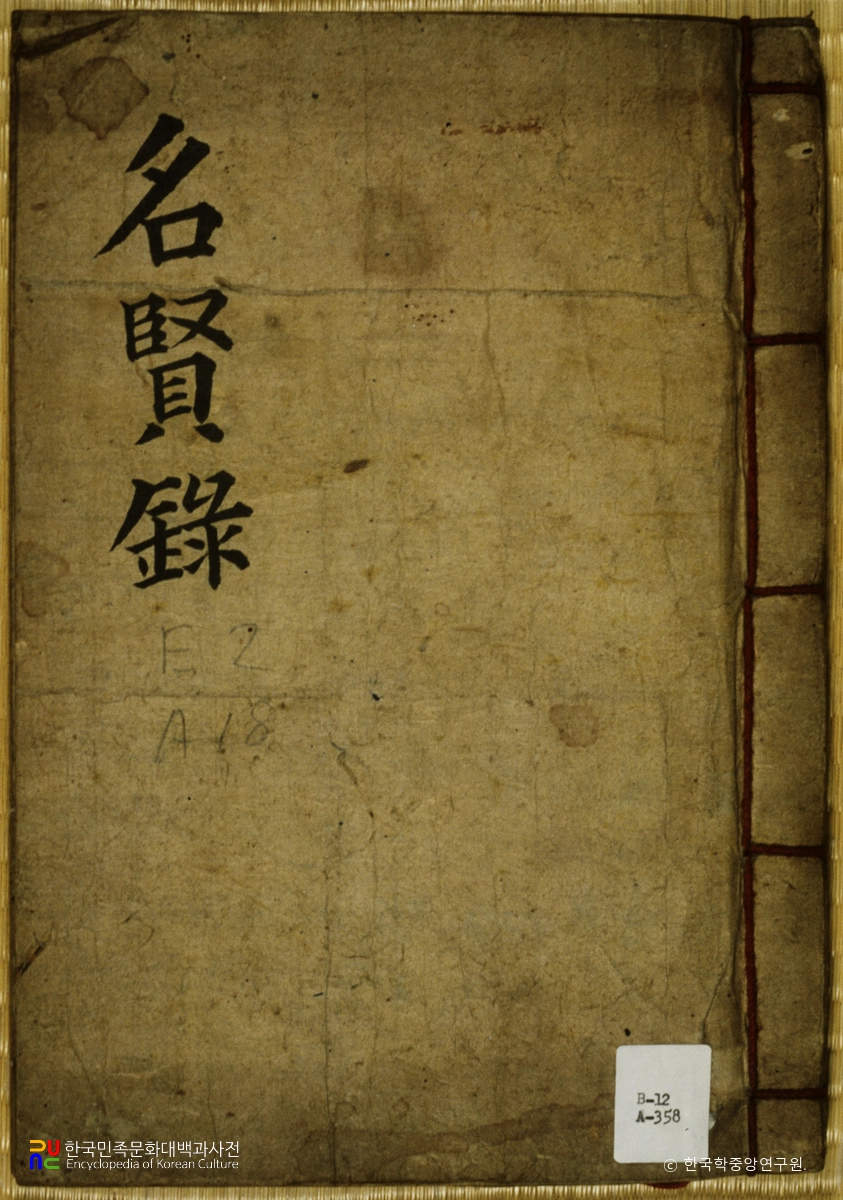 名賢錄
E 2
A 18
B-12
A-358
한국민족문화대백과사전
Encyclopedia of Korean Culture
© 한국학중앙연구원